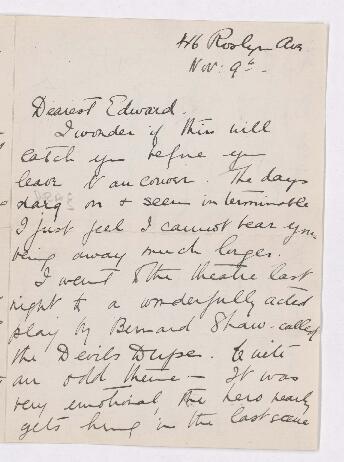 416 Roslyn Ave
Nov. 9th
Dearest Edward.
I wonder if this will
catch you before you
leave Vancouver. The days
drag on & seem interminable
I just feel I cannot bear you
being away much longer.
I went to the theatre last
night to a wonderfully acted
play by Bernard Shaw - called
the Devils Dupe. Quite
an odd theme — It was
very emotional, the hero nearly
gets hung in the last scene